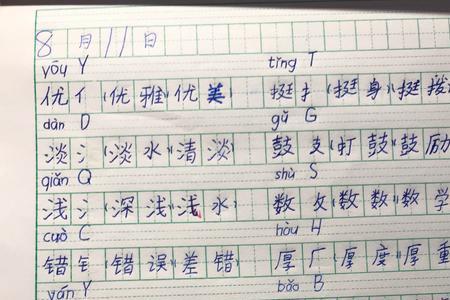 8月11日
yōu Y tǐng T
优亻(优雅)(优美) 挺扌(挺身)(挺拨
dàn D gǔ G
淡氵(淡水)(清淡) 鼓支(打鼓)(鼓励
qiǎn Q shù S
浅氵(深浅)(浅水) 数攵(数数)(数学
cuò C hòu H
错钅(错误)(差错) 厚厂(厚度)(厚重
Y bǎo B